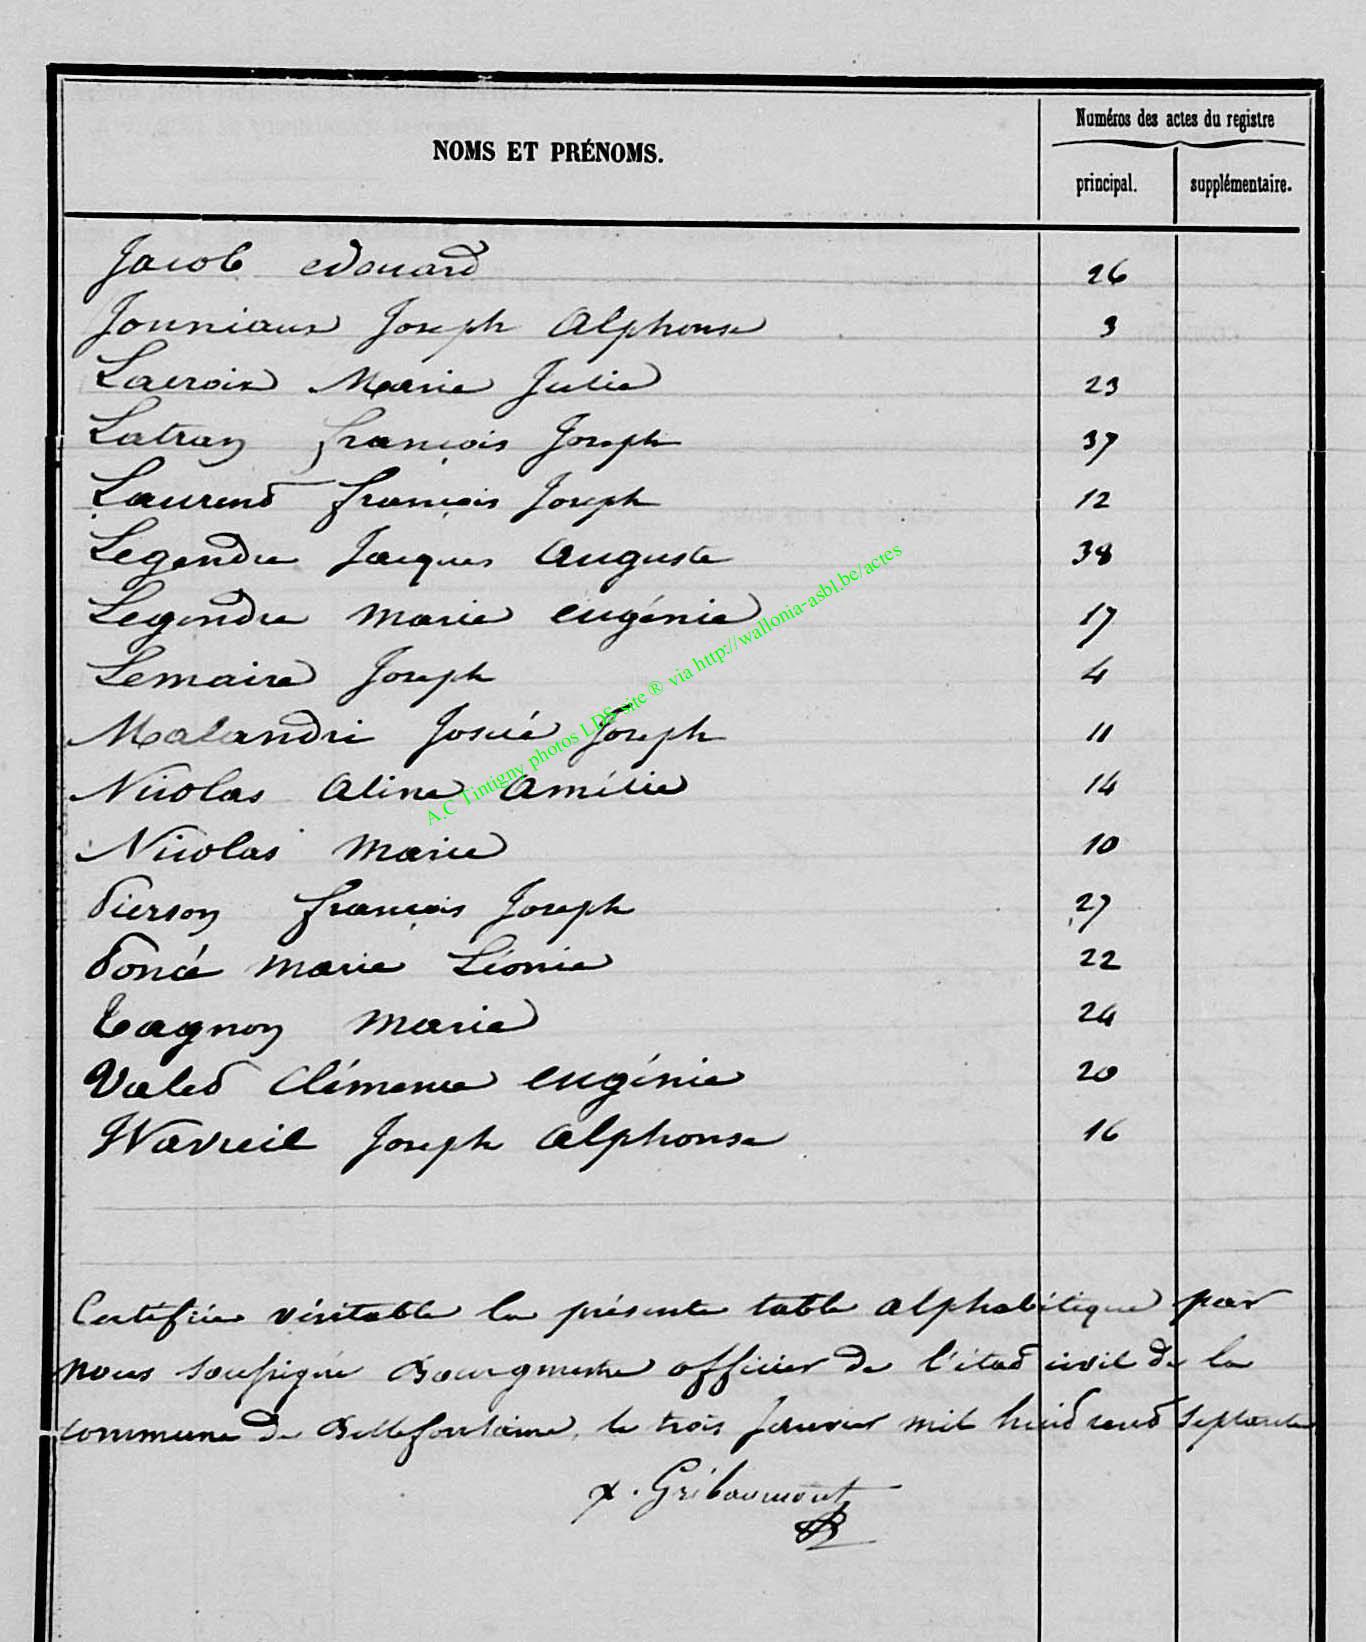 Numéros des actes du registre
NOMS ET PRÉNOMS.
principal. supplémentaire.
Jacob edouard 26
Jonniaux Joseph Alphonse 3
Lacroix Marie Julie 23
Latran françois Joseph 37
Laurent françois Joseph 12
Legendre Jacques Auguste 38
Legendre Marie eugénie 17
Lemaire Joseph 4
Joseph 11
Nicolas Aline Amélie 14
Nicolas Marie 10
Pierson françois Joseph 27
Poncé Marie Léonie 22
Tagnon Marie 24
Valet Clémence eugénie 20
Wavreil Joseph Alphonse 16
Certifiée véritable la présente table alphabétique par
nous soussigné Bourgmestre officier de l'état civil de la
commune de Bellefontaine, le trois Janvier mil huit cent septante
x. Gribaumont
A.C Tintigny photos LDS site ® via http://wallonia-asbl.be/actes